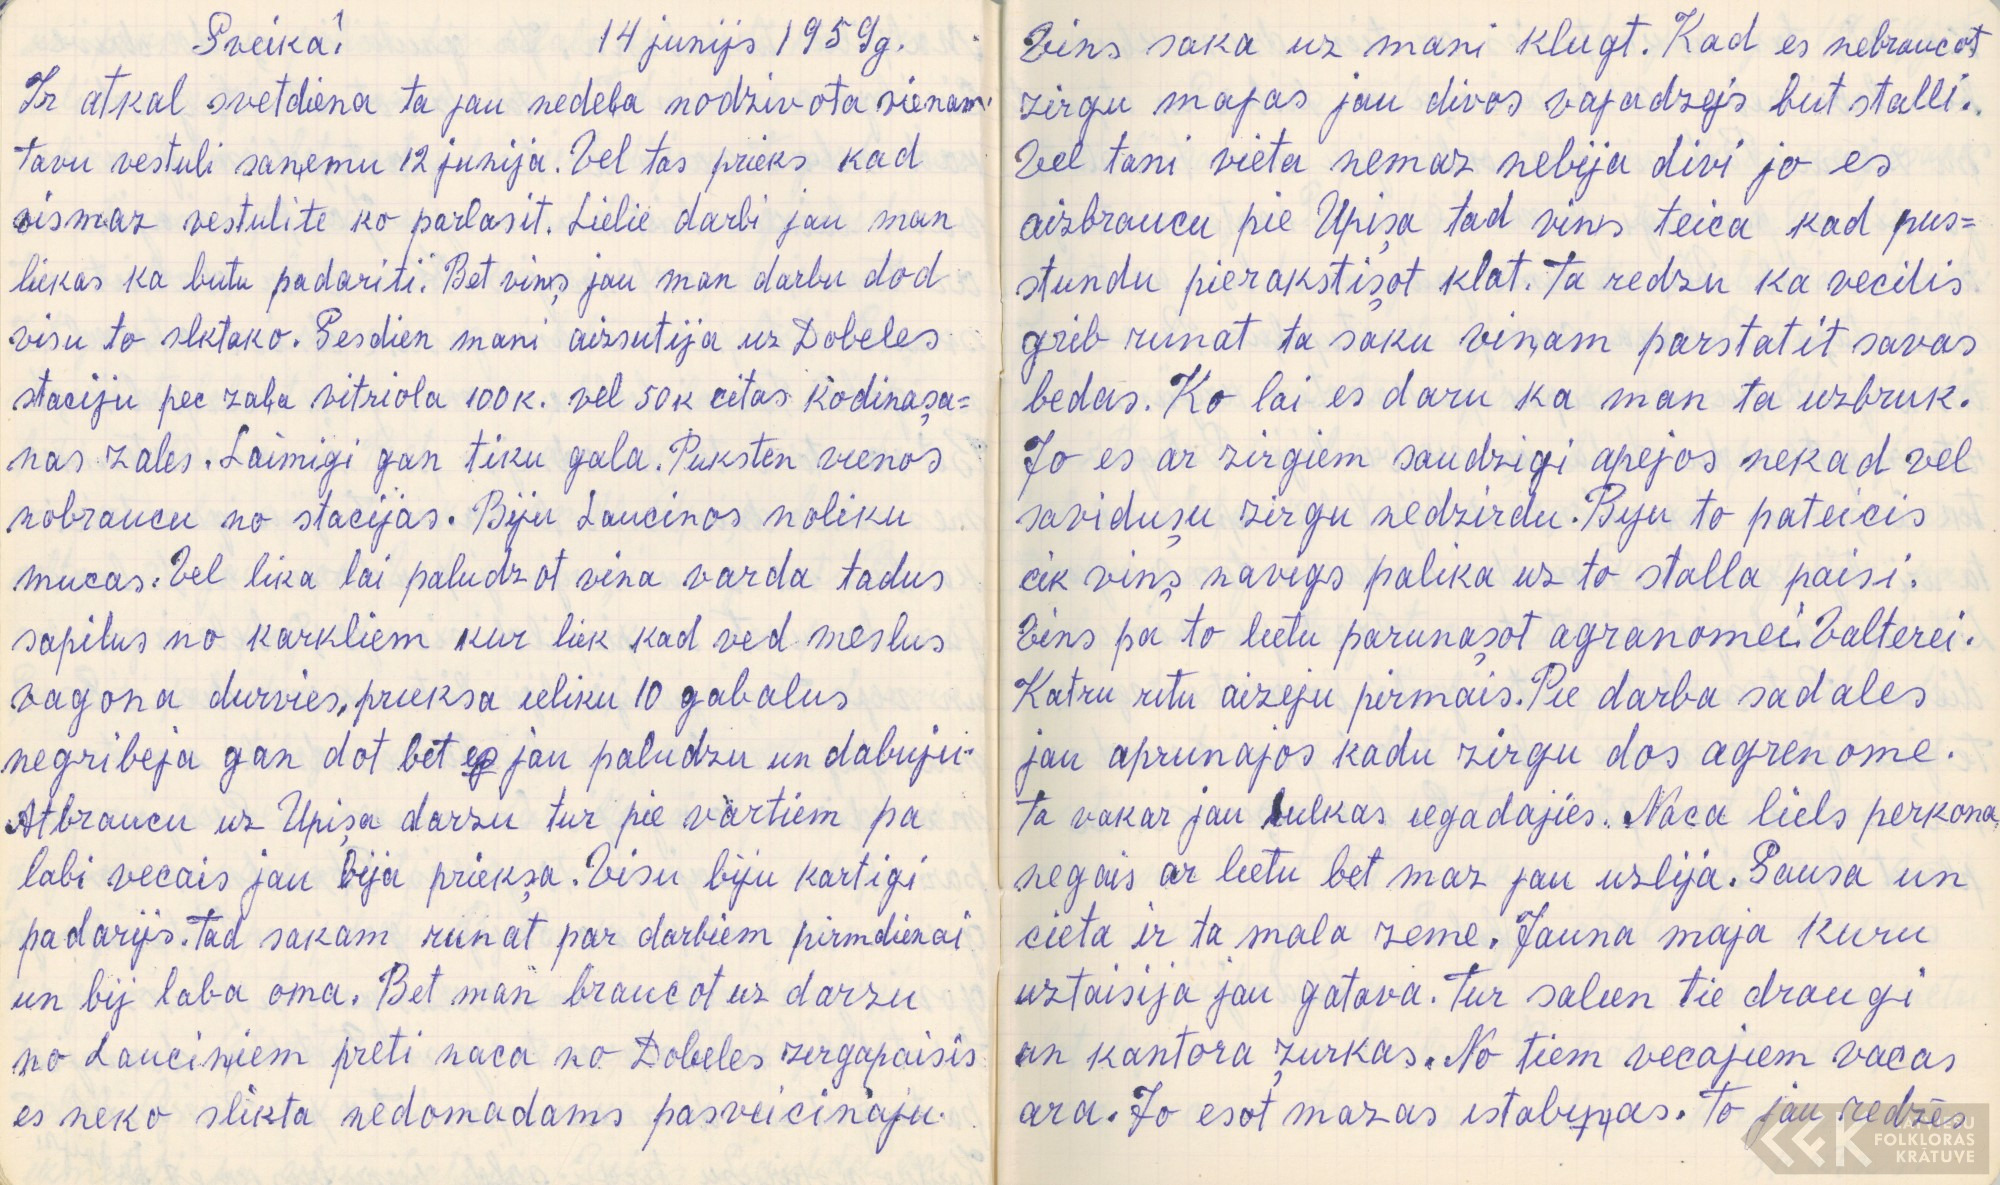 Sveika! 14 junijs 1959g.
Ir atkal svetdiena ta jau nedeļa nodzivota vienam.
tavu vestuli saņemu 12 junija. Vel tas prieks kad
vismaz vestulite ko parlasit. Lielie darbi jau man
liekas ka butu padariti. Bet viņš jau man darbu dod
visu to sliktako. Sesdien mani aizsutija uz Dobeles
staciju pec zaļa vitriola 100k. vel 50k citas kodinaša=
nas zales. Laimigi gan tiku gala. Puksten vienos
nobraucu no stacijas. Biju Laucinos noliku
mucas. Vel lika lai paludzot viņa varda tadus
sapilus no karkliem kur liek kad ved meslus
vagona durvies, prieksa ieliku 10 gabalus
negribeja gan dot bet es jau paludzu un dabuju.
Atbraucu uz Upiša darzu tur pie vartiem pa
labi vecais jau bija priekša. Visu biju kartigi
padarijs. Tad sakam runat par darbiem pirmdienai
un bij laba oma. Bet man braucot uz darzu
no Lauciņiem preti naca no Dobeles zirgapaisis
es neko slikta nedomadams pasveicinaju.
Vins saka uz mani klugt. Kad es nebraucot
zirgu majas jau divos vajadzejs but stalli.
Vel tani vieta nemaz nebija divi jo es
aizbraucu pie Upiša tad vins teica kad pus=
stundu pierakstišot klat. Ta redzu ka vecitis
grib runat ta saku viņam parstatit savas
bedas. Ko lai es daru ka man ta uzbruk.
Jo es ar zirgiem saudzigi apejos nekad vel
savidušu zirgu nedzirdu. Biju to pateicis
cik viņš navigs palika uz to stalla paisi.
Vins pa to lietu parunašot agranomei Valterei.
Katru ritu aizeju pirmais. Pie darba sadales
jau aprunajos kadu zirgu dos agrenome.
ta vakar jau bulkas iegadajies. Naca liels perkona
negais ar lietu bet maz jau uzlija. Sausa un
cieta ir ta mala zeme. Jauna maja kuru
uztaisija jau gatava. Tur salien tie draugi
un kantora žurkas. No tiem vecajiem vacas
ara. Jo esot mazas istabiņas. To jau redzēs
LATVIEŠU
FOLKLORAS
KRĀTUVE